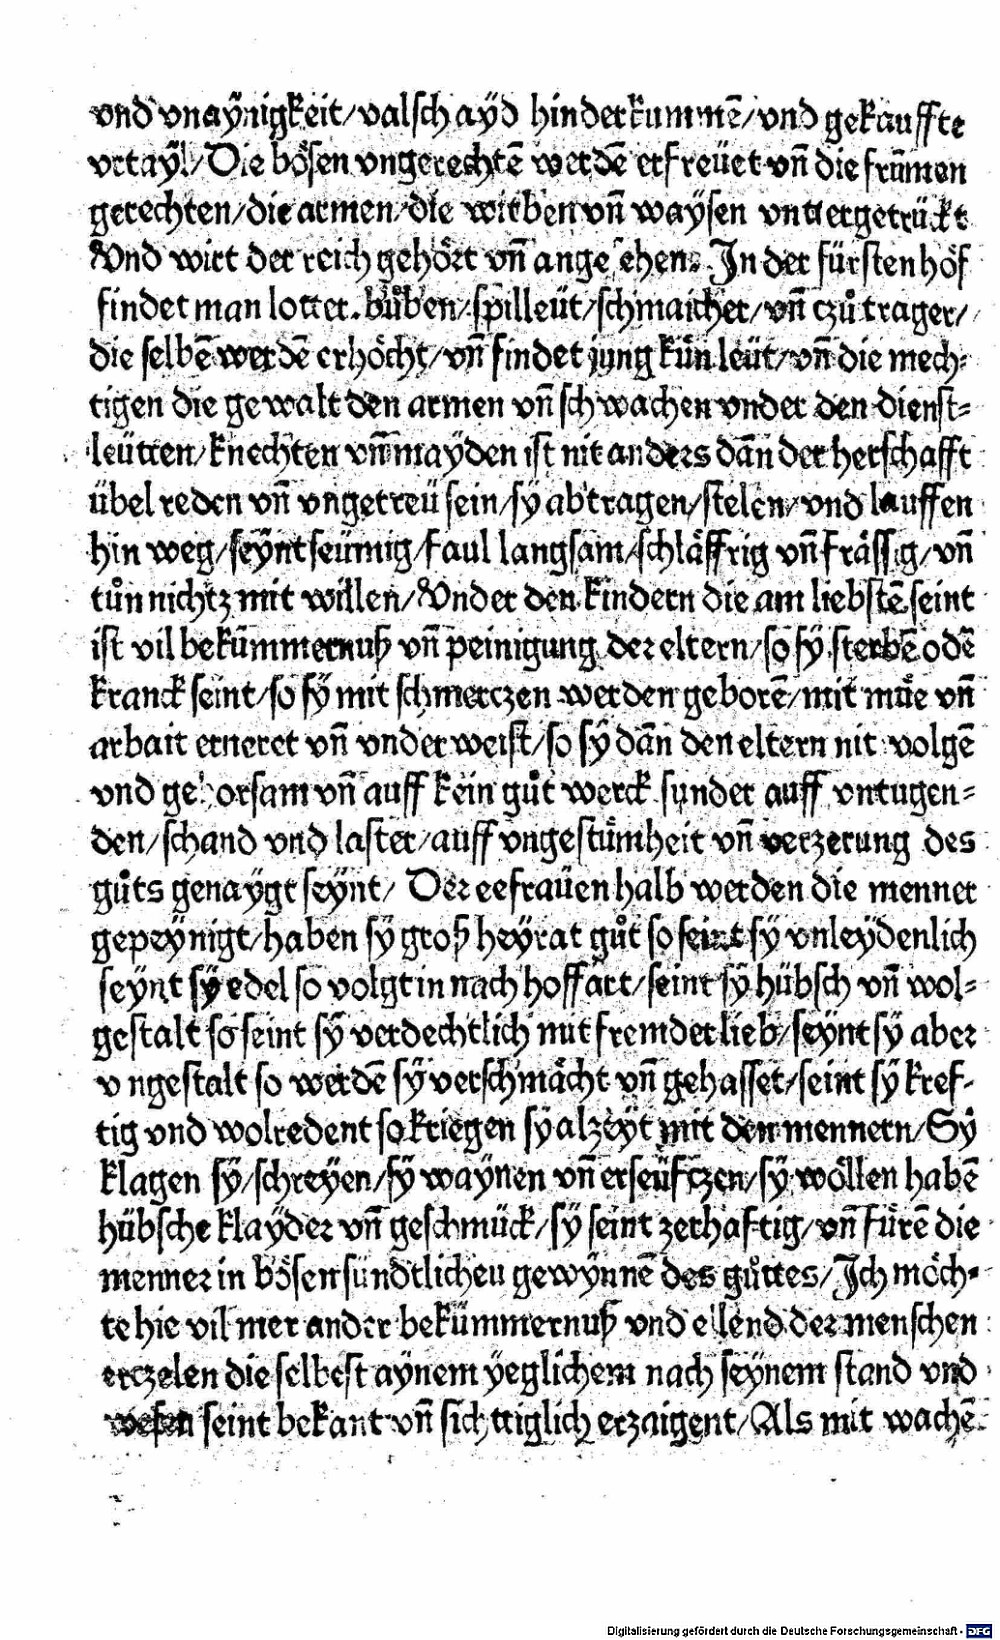 vnd vnaÿnigkeit/valsch aÿd hinderkummē/vnd gekauffte
vrtaÿl/Die bösen vngerechtē werdē erfreüet vn̄ die frūmen
gerechten/die armen/die witben vn̄ waysen vnttergetrückt
Vnd wirt der reich gehört vn̄ angesehen. In der fürsten höf
findet man lotter.bůben/spilleüt/schmaicher/vn̄ czů trager/
die selbē werdē erhöcht/vn̄ findet jung kün leüt/vn̄ die mech⸗
tigen die gewalt den armen vn̄ schwachen vnder den dienst⸗
leütten/knechten vn̄ mayden ist nit anders dān der herschafft
übel reden vn̄ vngetreü sein/sÿ abtragen/stelen/vnd lauffen
hin weg/seÿnt seümig/faul langsam/schläffrig vn̄ frässig/vn̄
tůn nichtz mit willen/Vnder den kindern die am liebstē seint
ist vil bekūmmernuß vn̄ peinigung der eltern/so sÿ sterbē odē
kranck seint/so sÿ mit schmerczen werden geborē/mit müe vn̄
arbait erneret vn̄ vnderweist/so sÿ dān den eltern nit volgē
vnd gehorsam vn̄ auff kein gůt werck sunder auff vntugen⸗
den/schand vnd laster/auff vngestümheit vn̄ verzerung des
gůts genaÿgt seÿnt/ Der eefrauen halb werden die menner
gepeÿnigt/haben sÿ groß heÿrat gůt so seint sÿ vnleÿdenlich
seÿnt sÿ edel so volgt in nach hoffart/seint sÿ hübsch vn̄ wol⸗
gestalt so seint sÿ verdechtlich mit fremder lieb/seÿnt sÿ aber
vngestalt so werdē sÿ verschmächt vn̄ gehasset/seint sÿ kref⸗
tig vnd wolredent so kriegen sÿ alzeÿt mit den mennern/Sÿ
klagen sÿ/schreÿen/sÿ waÿnen vn̄ erseüfczen/sÿ wöllen habē
hübsche klaÿder vn̄ geschmück/sÿ seint zerhaftig/vn̄ fürē die
menner in bösen sündtlichen gewÿnnē des gůttes/Ich möch⸗
te hie vil mer ander bekümmernuß vnd ellend der menschen
erczelen die selbest aÿnem ÿeglichem nach seÿnem stand vnd
wesen seint bekant vn̄ sichttiglich erzaigent/Als mit wachē
Digitalisierung gefördert durch die Deutsche Forschungsgemeinschaft - DFG